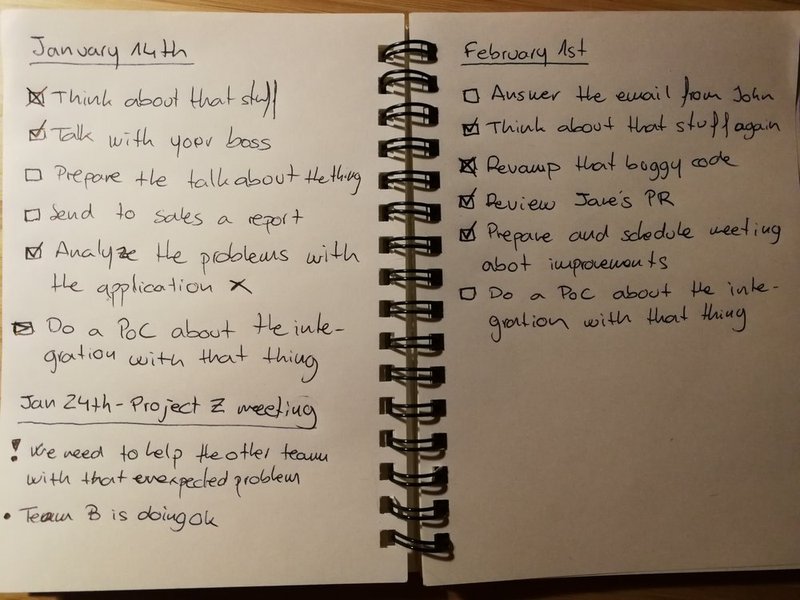 January 14th
Think about that stuff
Talk with your boss
Prepare the talk about the thing
Send to sales a report
Analyze the problems with
the application x
Do a PoC about the inte-
gration with that thing
Jan 24th - Project Z meeting
! We need to help the other team
with that unexpected problem
• Team B is doing ok
February 1st
Answer the email from John
Think about that stuff again
Revamp that buggy code
Review Jane's PR
Prepare and schedule meeting
abot improvements
Do a PoC about the inte-
gration with that thing